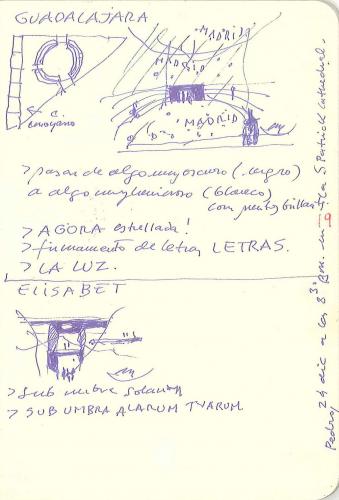 GUADALAJARA
MADRID
MADRID
MADRID
S. C.
> pasar de algo muy oscuro (negro)
a algo muy luminoso (blanco)
con puntos brillan
> AGORA estrellada!
> firmamento de letras LETRAS.
> LA LUZ.
ELISABET
> Sub umbra
> SUB UMBRA ALARUM TUARUM
Pedro, 24 dic a las 8 S Patrick Cathedral.